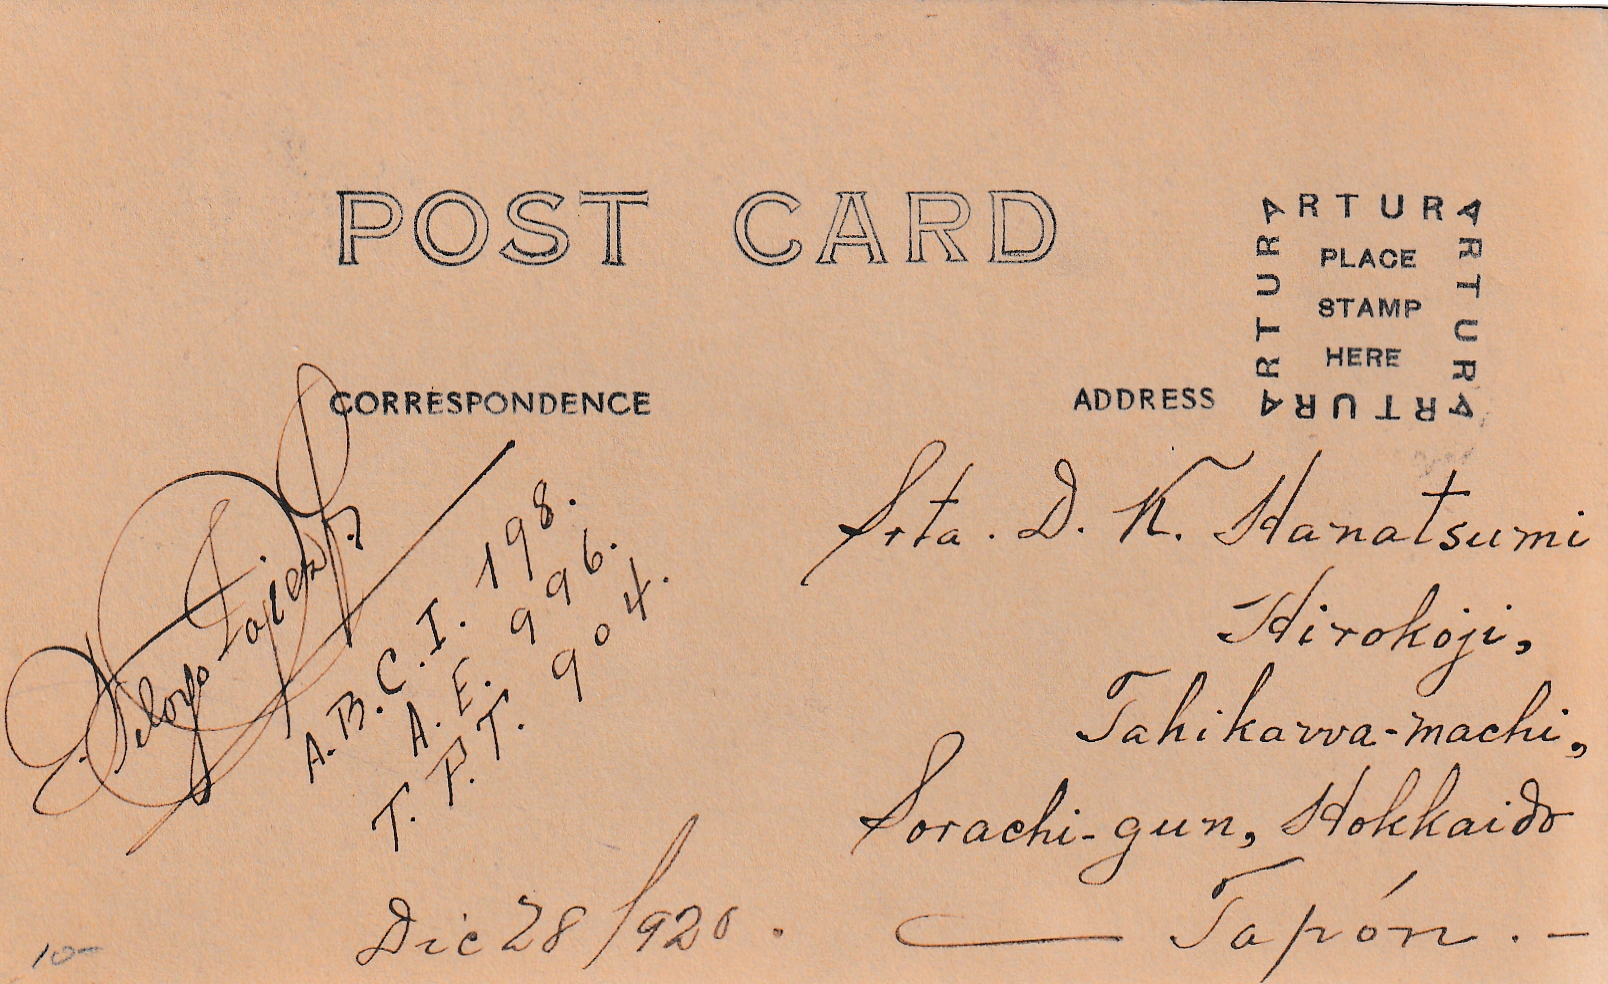 POST CARD
ARTURA
ARTURA
ARTURA
ARTURA
PLACE
STAMP
HERE
CORRESPONDENCE
ADDRESS
A.B.C.I. 198.
A.E. 996.
T.P.T. 904.
Dic 28/920.
Srta. D. K. Hanatsumi
Hirokoji,
Takikawa-machi,
Sorachi-gun, Hokkaido
Japón.-
10-